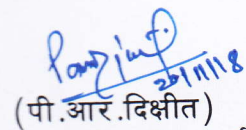 20/11/18
(पी.आर.दिक्षीत)